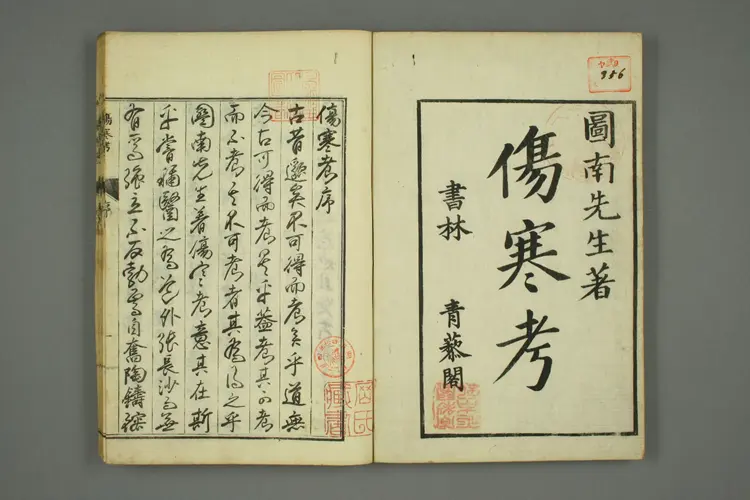 圖南先生著
傷寒考
書林 青藜閣
956
傷寒考序
古昔邈矣不可得而考矣乎道無
今古可得而考是乎蓋考其可考
而不考其不可考者其為得之乎
圖南先生著傷寒考意其在斯
乎嘗稱醫之為道外張長沙無
有焉張立不反勃焉自奮陶鑄
傷寒考 序